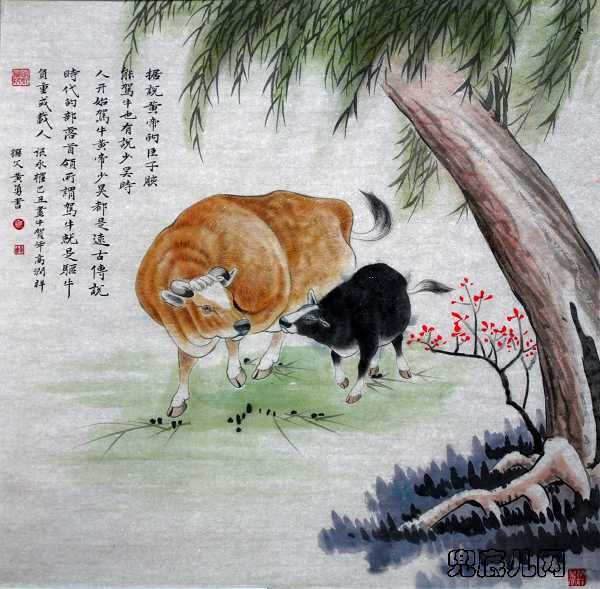 据说黄帝的臣子胲
能驾牛也有说少昊时
人开始驾牛黄帝少昊都是远古传说
时代的部落首领所谓驾牛就是驱牛
负重或载人
己丑画牛贺年高润祥
撰文黄勇书
兜底儿网